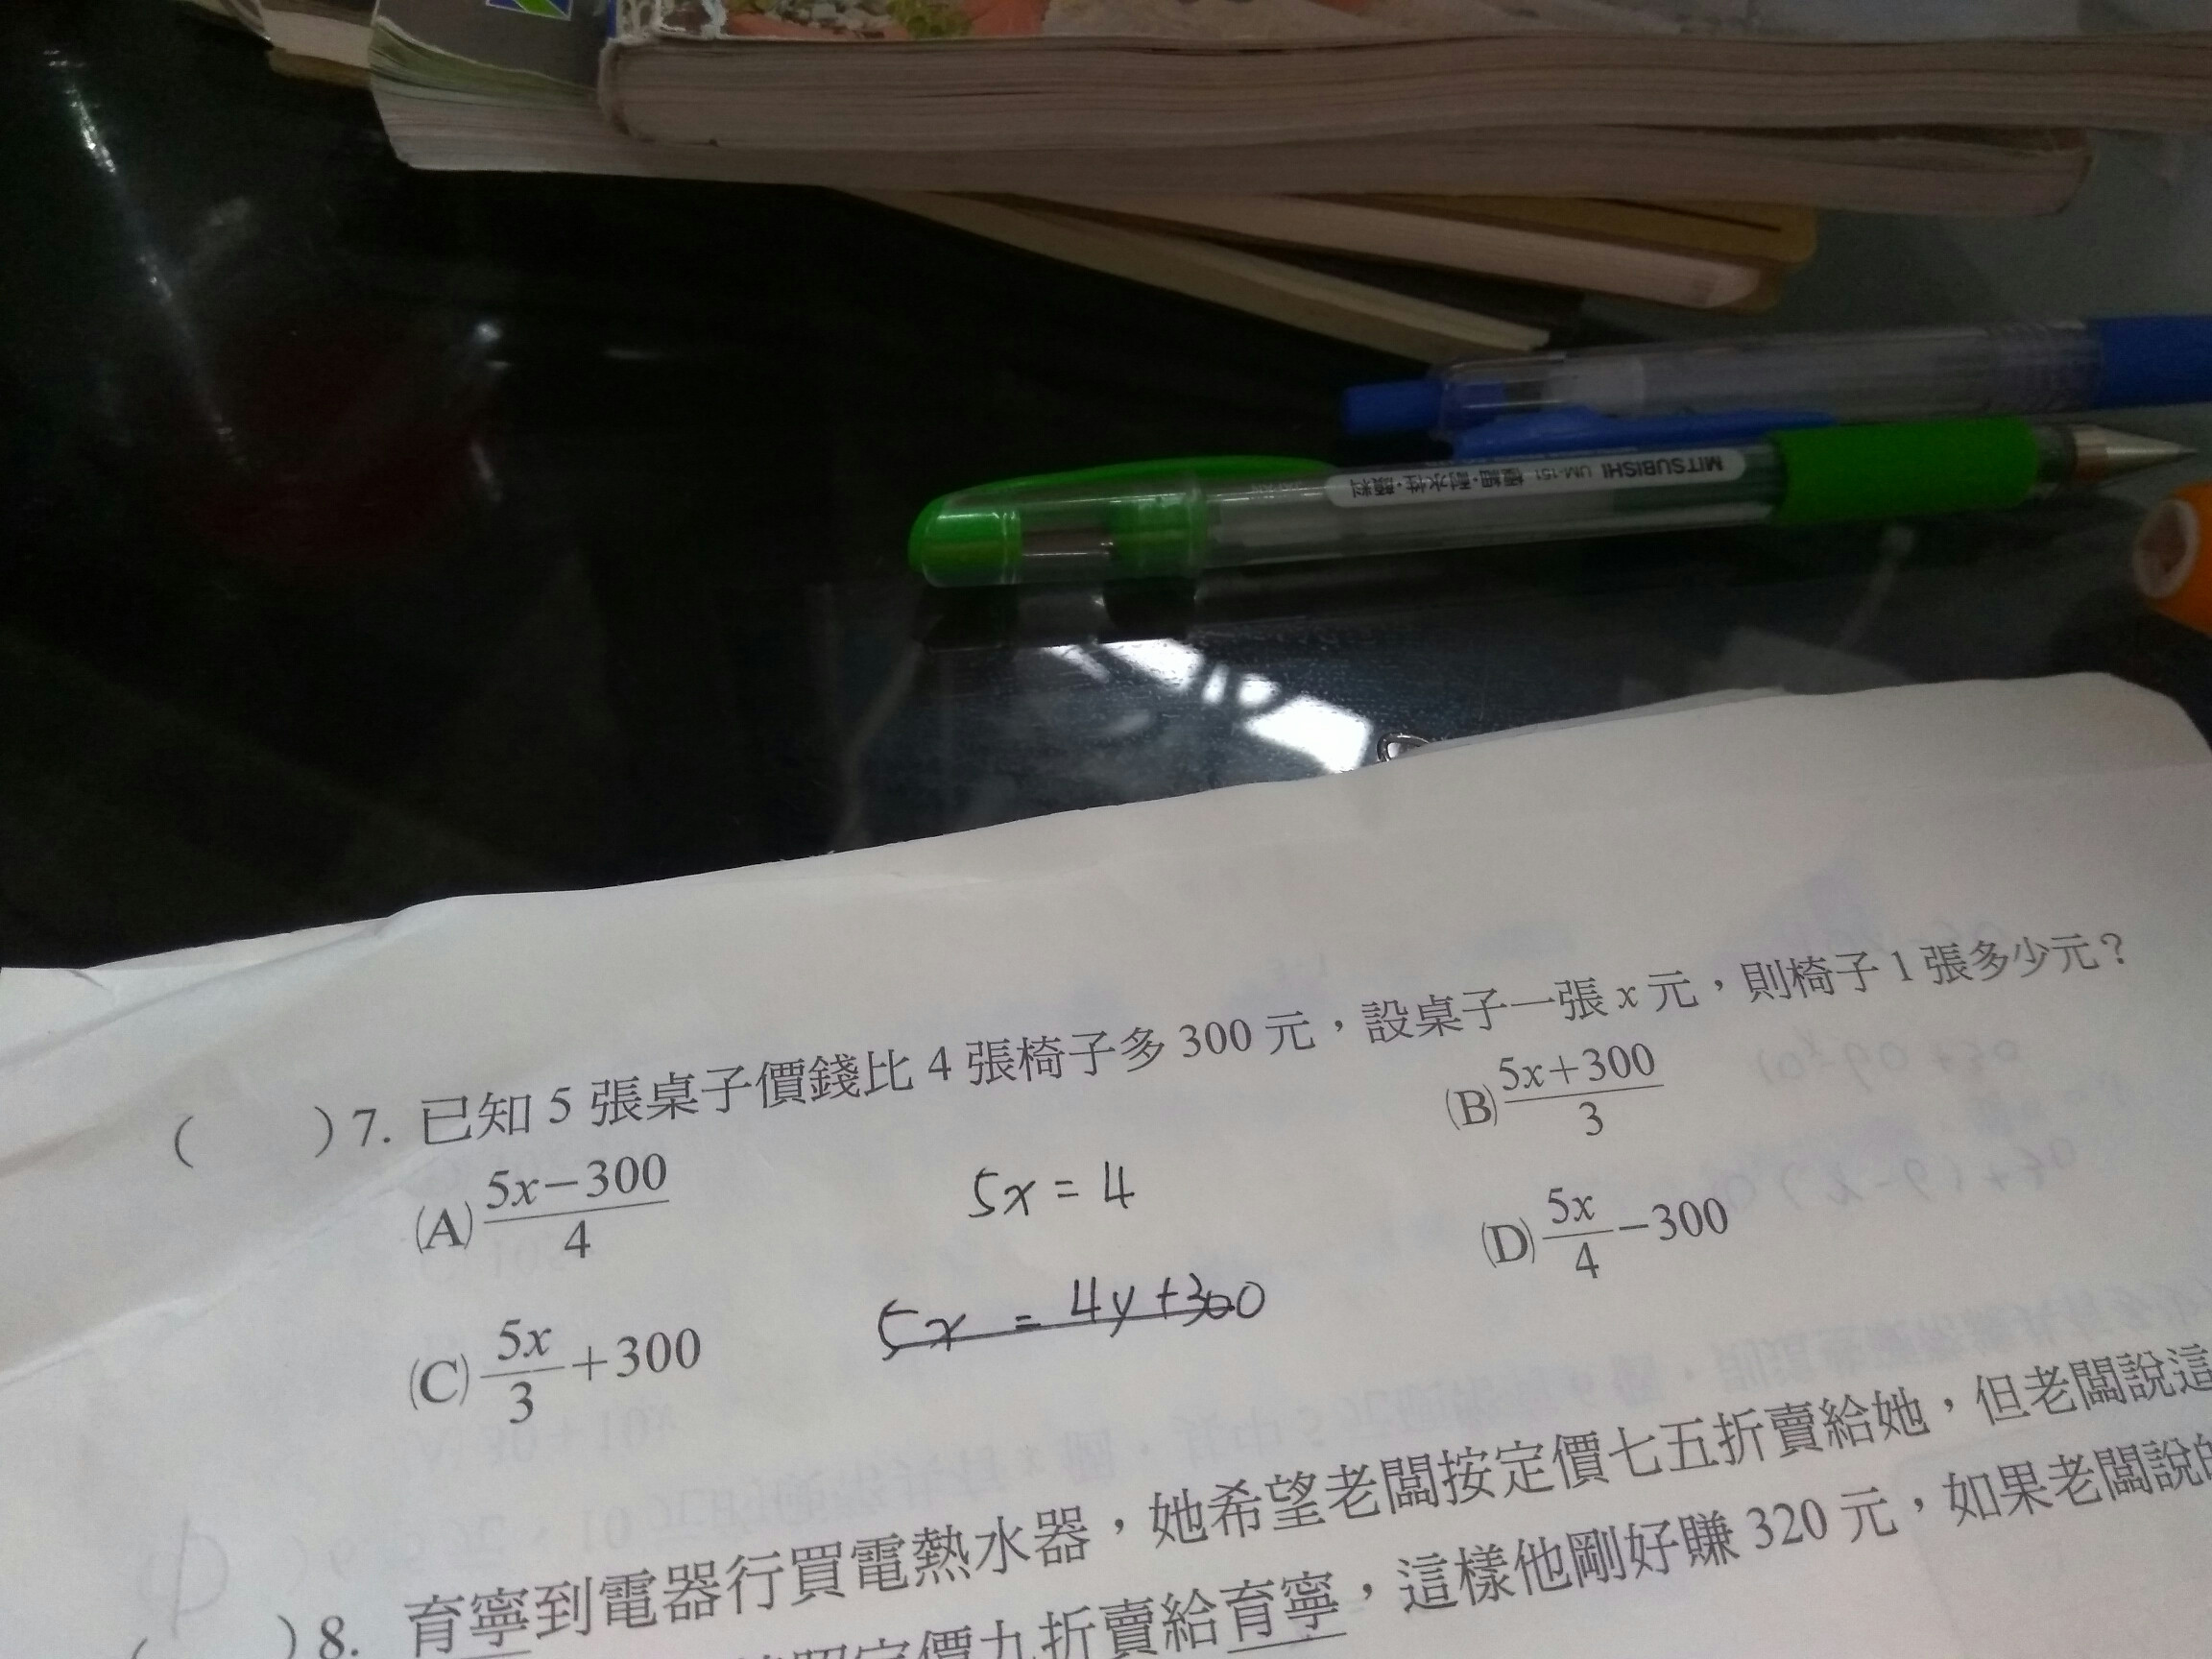 MITSUBISHI UM-151 極細・耐水性・顏料
( )7. 已知 5 張桌子價錢比 4 張椅子多 300 元，設桌子一張 x 元，則椅子 1 張多少元？
(A) (5x−300)/4 (B) (5x+300)/3
5x = 4
(C) 5x/3 +300 (D) 5x/4 −300
5x = 4y+300
( )8. 育寧到電器行買電熱水器，她希望老闆按定價七五折賣給她，但老闆說這
定價九折賣給育寧，這樣他剛好賺 320 元，如果老闆說的